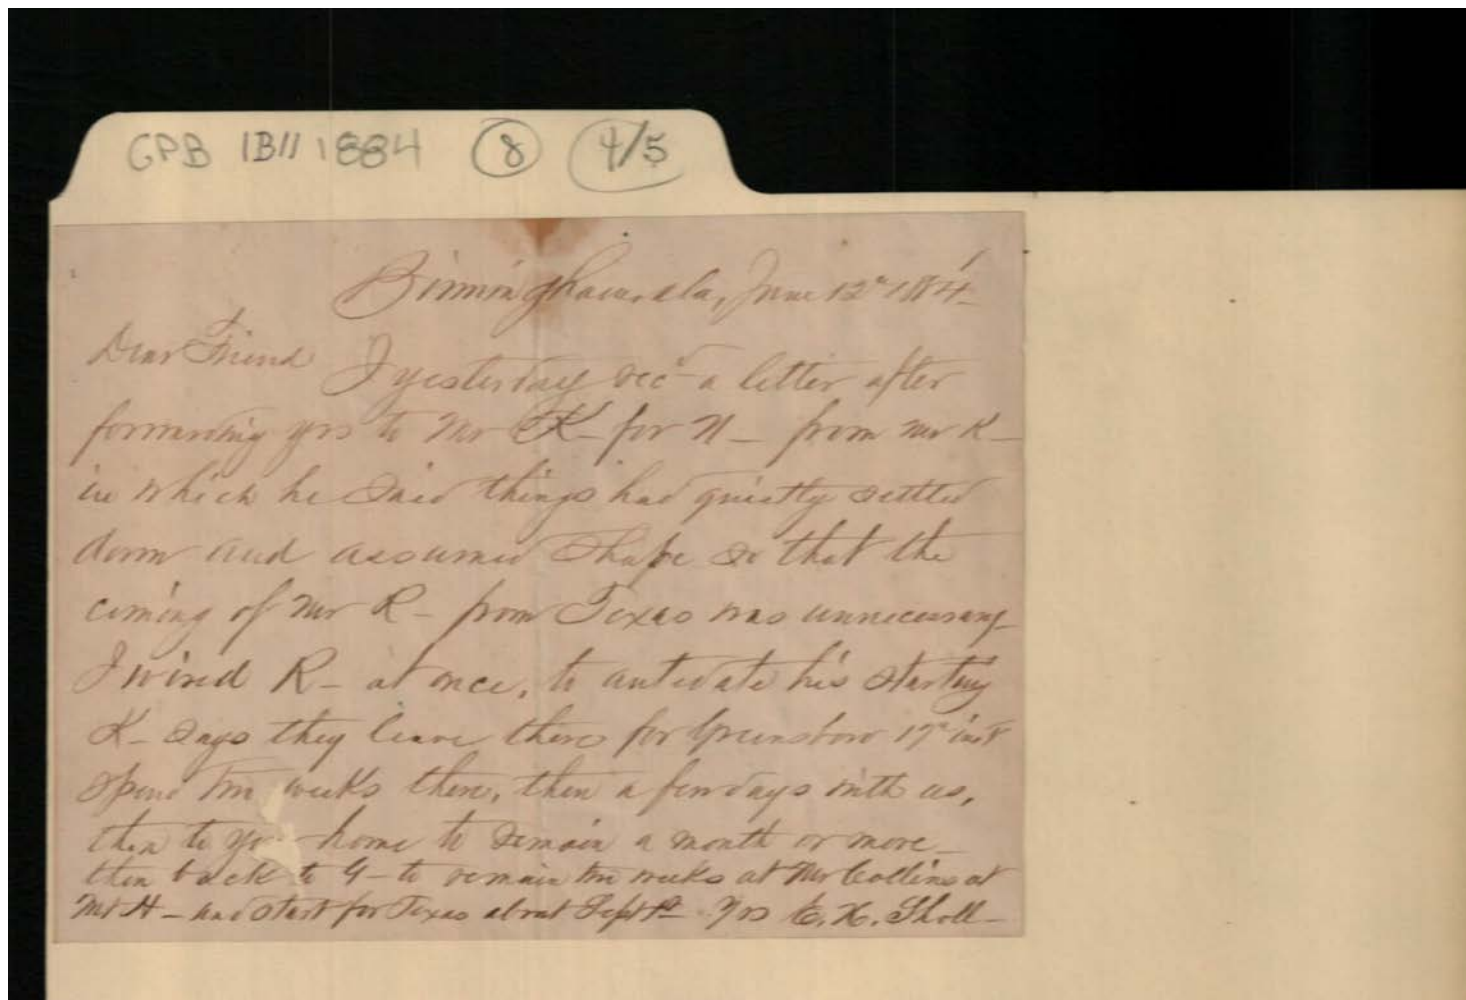 GPB IB11 1884 8 4/5
Birmingham, Ala, June 12th 1884
Dear Friend I yesterday recd a letter after
forwarding yrs to Mr K- for N- from Mr K-
in which he said things had quietly settled
down and assumed shape so that the
coming of Mr R- from Texas was unnecessary-
I wired R- at once, to antedate his starting
K- says they leave there for Greensboro 17th inst
spend two weeks there, then a few days with us,
then to your home to remain a month or more-
then back to G- to remain two weeks at Mr Collins at
Mt H- and start for Texas about Sept 1st Yrs E. H. Sholl-